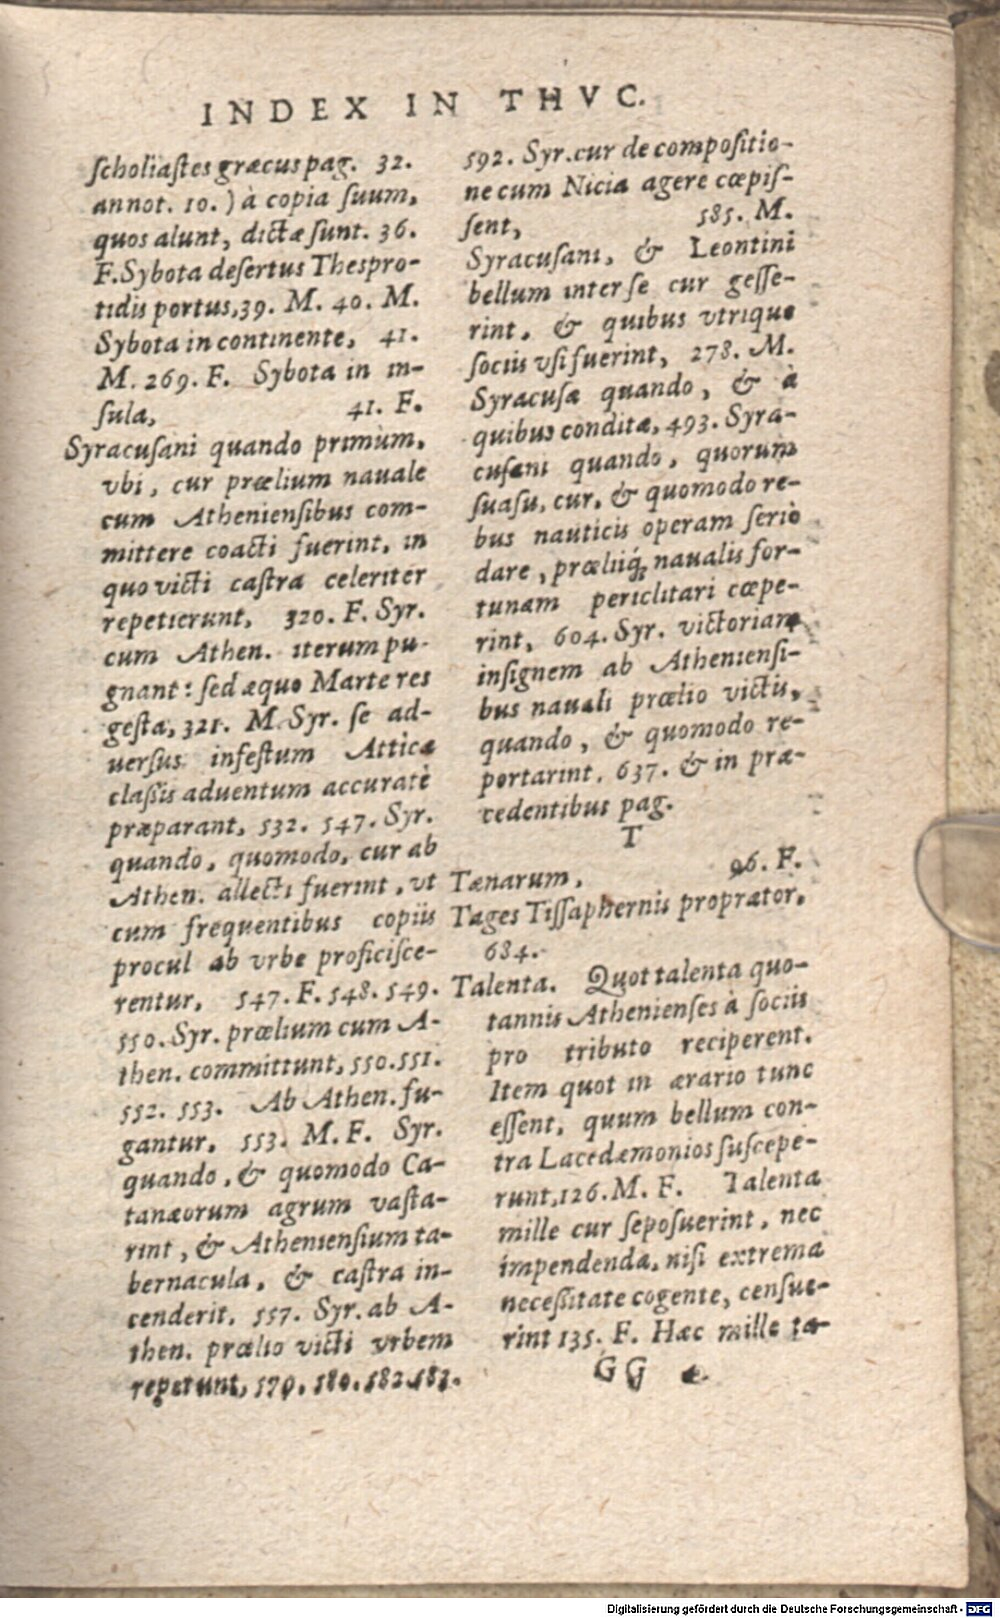 INDEX IN THVC.
ſcholiaſtes græcus pag. 32.
annot. 10.) à copia ſuum,
quos alunt, dictæ ſunt. 36.
F. Sybota deſertus Theſpro-
tidis portus, 39. M. 40. M.
Sybota in continente, 41.
M. 269. F. Sybota in in-
ſula, 41. F.
Syracuſani quando primùm,
vbi, cur prælium nauale
cum Athenienſibus com-
mittere coacti fuerint, in
quo victi caſtra celeriter
repetierunt, 320. F. Syr.
cum Athen. iterum pu-
gnant: ſed æquo Marte res
geſta, 321. M. Syr. ſe ad-
uerſus infeſtum Atticæ
claſsis aduentum accuratè
præparant, 532. 547. Syr.
quando, quomodo, cur ab
Athen. allecti fuerint, vt
cum frequentibus copiis
procul ab vrbe proficiſce-
rentur, 547. F. 548. 549.
550. Syr. prælium cum A-
then. committunt, 550. 551.
552. 553. Ab Athen. fu-
gantur, 553. M. F. Syr.
quando, & quomodo Ca-
tanæorum agrum vaſta-
rint, & Athenienſium ta-
bernacula, & caſtra in-
cenderit, 557. Syr. ab A-
then. prælio victi vrbem
repetunt, 579. 580. 582. 583.
592. Syr. cur de compoſitio-
ne cum Nicia agere cœpiſ-
ſent, 585. M.
Syracuſani, & Leontini
bellum inter ſe cur geſſe-
rint, & quibus vtrique
ſociis vſi fuerint, 278. M.
Syracuſæ quando, & à
quibus conditæ, 493. Syra-
cuſani quando, quorum
ſuaſu, cur, & quomodo re-
bus nauticis operam ſeriò
dare, præliiq́; naualis for-
tunam periclitari cœpe-
rint, 604. Syr. victoriam
inſignem ab Athenienſi-
bus nauali prælio victis,
quando, & quomodo re-
portarint, 637. & in præ-
cedentibus pag.
T
Tænarum, 96. F.
Tages Tiſſaphernis proprætor,
684.
Talenta. Quot talenta quo-
tannis Athenienſes à ſociis
pro tributo reciperent.
Item quot in ærario tunc
eſſent, quum bellum con-
tra Lacedæmonios ſuſcepe-
runt, 126. M. F. Talenta
mille cur ſepoſuerint, nec
impendenda, niſi extrema
neceſſitate cogente, cenſue-
rint 135. F. Hæc mille ta-
GG
Digitalisierung gefördert durch die Deutsche Forschungsgemeinschaft - DFG